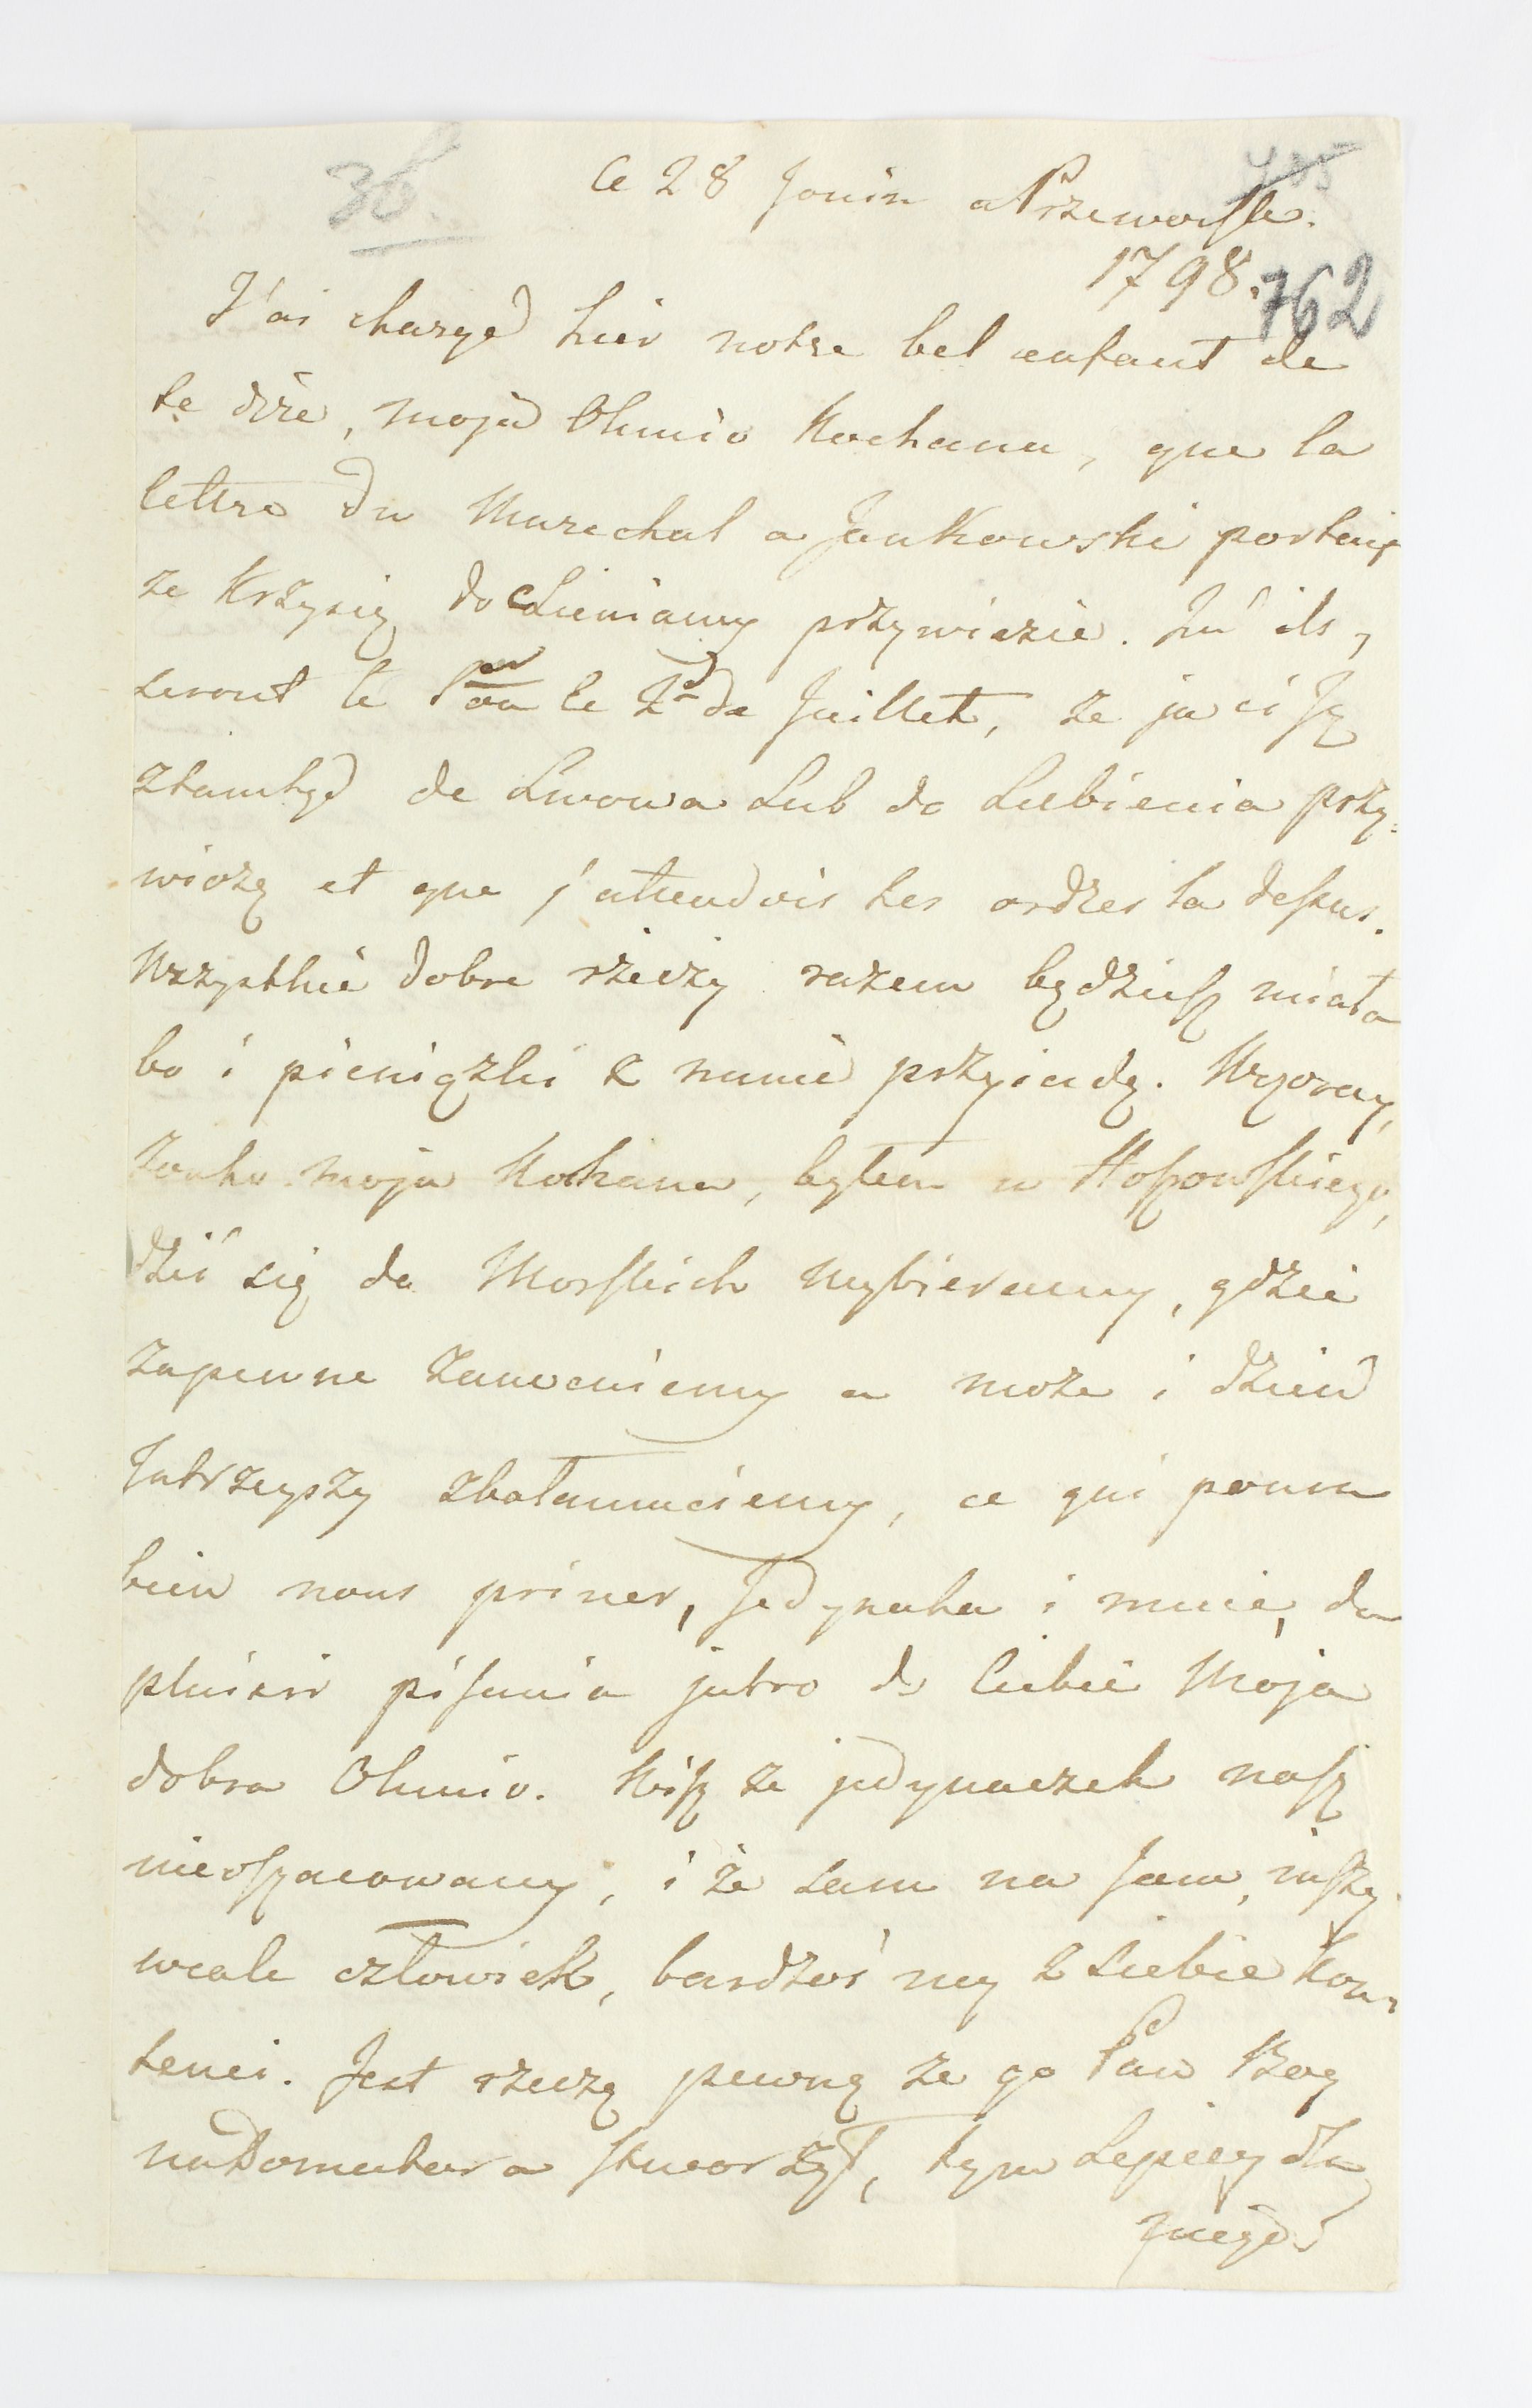 36.
Ce 28 Jouin a Przeworsk.
1798.
762
J'ai chargé hier notre bel enfant de
te dire, moja Oluniu Kochana, que la
lettre du Marechal a Jankowski portait
ze Krzysię do Sieniawy przywiezie. qu'ils y
seront le 1er ou le 2d de Juillet, ze ja ci Ją
ztamtąd do Lwowa Lub do Lubienia przy=
wiozę et que j'attendois tes ordres la dessus.
Wszystkie dobre rzeczy razem będziesz miała
bo i pieniążki z nami przyiadą. Wczoray,
żonko moja Kochana, byłem u Hoszowskiego,
dziś się do Morskich wybieramy, gdzie
zapewne zanocuiemy a może i dzień
Jutrzeyszy zbałamuciemy, ce qui pourra
bien nous priver, Jedynaka i mnie, du
plaisir pisania jutro do Ciebie Moja
dobra Oluniu. Wisz ze jedynaczek nasz
nieoszacowany, i że sam na sam,
wcale człowiek, bardzoś my z siebie kon=
tenci. Jest rzeczą pewną ze go Pan Bog
na Domatora stworzył, tym Lepiey dla
niego